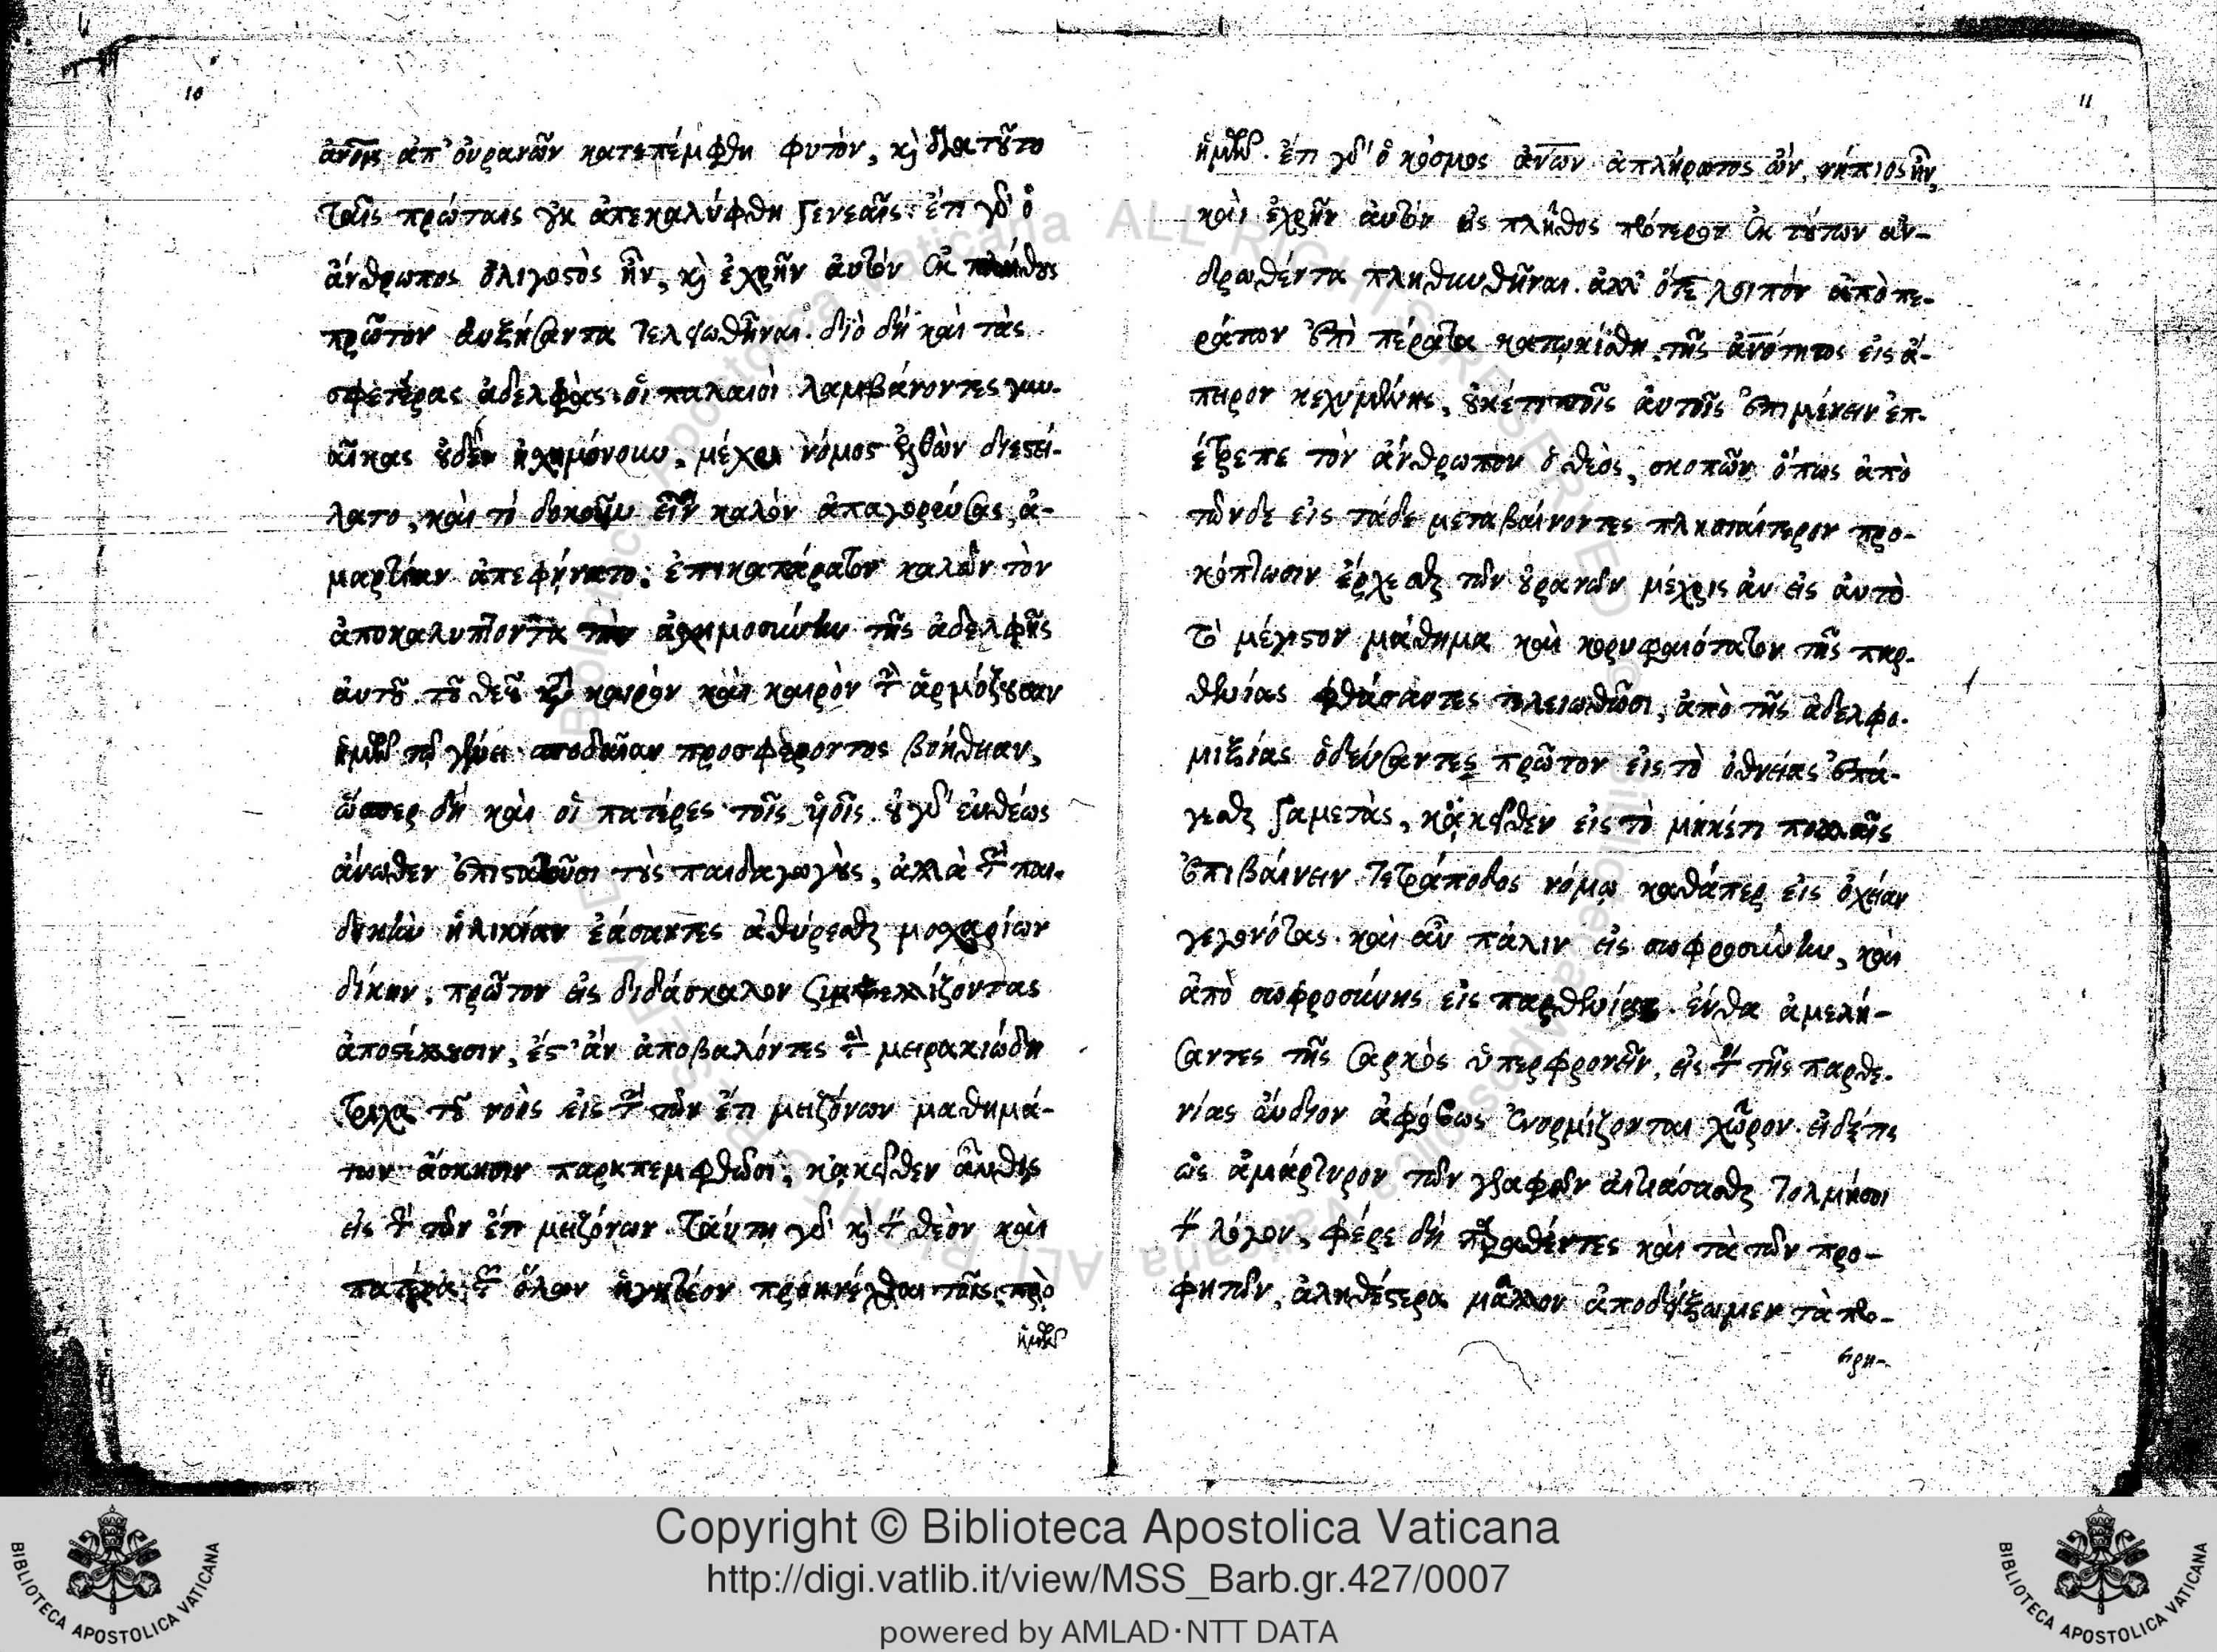 10
ἀνοις ἀπ' οὐρανῶν κατεπέμφθη φυτὸν, κὶ διατοῦτο
ταῖς πρώταις οὐκ ἀπεκαλύφθη γενεαῖς· ἔτι γὰρ ὁ
ἄνθρωπος ὀλιγοστὸς ἦν, κὶ ἐχρῆν αὐτὸν ἐκ πλήθους
πρῶτον αὐξήσαντα τελειωθῆναι. διὸ δὴ καὶ τὰς
σφετέρας ἀδελφὰς οἱ παλαιοὶ λαμβάνοντες γυν-
αῖκας οὐδὲν ἠσχημόνουν, μέχρι νόμος ἐλθὼν διεστεί-
λατο, καὶ τὸ δοκοῦν εἶναι καλὸν ἀπαγορεύσας, ἁ-
μαρτίαν ἀπεφήνατο· ἐπικατάρατον καλῶν τὸν
ἀποκαλύπτοντα τὴν ἀσχημοσύνην τῆς ἀδελφῆς
αὐτοῦ. τοῦ θεοῦ κατὰ καιρὸν καὶ καιρὸν τὴν ἁρμόζουσαν
ἡμῶν τῷ γένει προσφέροντος βοήθειαν,
ὥσπερ δὴ καὶ οἱ πατέρες τοῖς υἱοῖς. οὐ γὰρ εὐθέως
ἄνωθεν ἐπιστατοῦσι τοὺς παιδαγωγοὺς, ἀλλὰ τὴν παι-
δικὴν ἡλικίαν ἐάσαντες ἀθύρεσθαι μοσχαρίων
δίκην, πρῶτον εἰς διδάσκαλον συμψελλίζοντας
ἀποστέλλουσιν, ἔστ' ἂν ἀποβαλόντες τὴν μειρακιώδη
τρίχα τοῦ νοὸς εἰς τὴν τῶν ἔτι μειζόνων μαθημά-
των ἄσκησιν παρεκπεμφθῶσι, κἀκεῖθεν αὖθις
εἰς τὴν τῶν ἔτι μειζόνων. ταύτῃ γὰρ κὶ τὸν θεὸν καὶ
πατέρα τῶν ὅλων ἡγητέον προσηνέχθαι τοῖς πρὸ
ἡμῶν
11
ἡμῶν. ἔτι γὰρ ὁ κόσμος ἀνων ἀπλήρωτος ὢν, νήπιος ἦν,
καὶ ἐχρῆν αὐτὸν εἰς πλῆθος πρότερον ἐκ τούτων ἀν-
δρωθέντα πληθυνθῆναι. ἀλλ' ὅτε λοιπὸν ἀπὸ πε-
ράτων ἐπὶ πέρατα κατῳκίσθη, τῆς ἀνότητος εἰς ἄ-
πειρον κεχυμένης, οὐκέτι τοῖς αὐτοῖς ἐπιμένειν ἐπ-
έτρεπε τὸν ἄνθρωπον ὁ θεὸς, σκοπῶν ὅπως ἀπὸ
τῶνδε εἰς τάδε μεταβαίνοντες πλησιαίτερον προ-
κόπτωσιν ἔρχεσθαι τῶν οὐρανῶν μέχρις ἂν εἰς αὐτὸ
τὸ μέγιστον μάθημα καὶ κορυφαιότατον τῆς παρ-
θενίας φθάσαντες τελειωθῶσι, ἀπὸ τῆς ἀδελφο-
μιξίας ὁδεύσαντες πρῶτον εἰς τὸ ὀθνείας ἐπά-
γεσθαι γαμετὰς, κἀκεῖθεν εἰς τὸ μηκέτι πολλαῖς
ἐπιβαίνειν τετράποδος νόμῳ καθάπερ εἰς ὀχείαν
γεγονότας. καὶ αὖ πάλιν εἰς σωφροσύνην, καὶ
ἀπὸ σωφροσύνης εἰς παρθενίαν. ἔνθα ἀμελή-
σαντες τῆς σαρκὸς ὑπερφρονεῖν, εἰς τὸν τῆς παρθε-
νίας εὔδιον ἀφόβως ἐνορμίζονται χῶρον. εἰ δέ τις
ὡς ἀμάρτυρον τῶν γραφῶν αἰτιάσασθαι τολμήσοι
τὸν λόγον, φέρε δὴ παραθέντες καὶ τὰ τῶν προ-
φητῶν, ἀληθέστερα μᾶλλον ἀποδείξαιμεν τὰ προ-
ειρη-
Copyright © Biblioteca Apostolica Vaticana
http://digi.vatlib.it/view/MSS_Barb.gr.427/0007
powered by AMLAD·NTT DATA
BIBLIOTECA APOSTOLICA VATICANA
BIBLIOTECA APOSTOLICA VATICANA